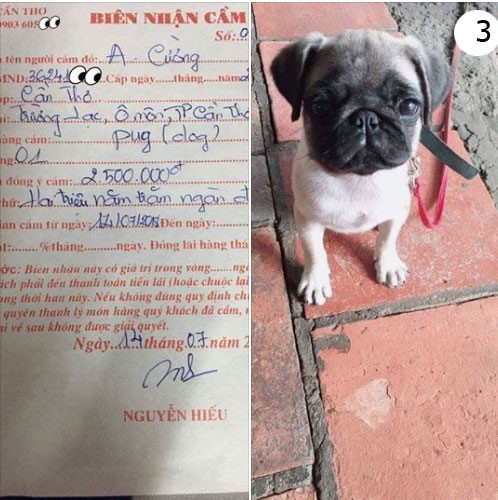 CẦN THƠ
0903 605
BIÊN NHẬN CẦM
Số:...0
tên người cầm đồ: A Cường
MND: 36241 Cấp ngày......tháng......năm
Cần Thơ
Trường Lạc, Ô môn, TP Cần Thơ
hàng cầm: pug (dog)
01
đồng ý cầm: 2 500.000đ
Hai triệu năm trăm ngàn đ
gian cầm từ ngày: 14/07/2018 Đến ngày:
%tháng.........ngày. Đóng lãi hàng thá
ớc: Biên nhận này có giá trị trong vòng......ng
ách phải đến thanh toán tiền lãi (hoặc chuộc lại
ong thời hạn này. Nếu không đúng quy định ch
quyền thanh lý món hàng quý khách đã cầm,
ại về sau không được giải quyết.
Ngày..14..tháng..07..năm 2
NGUYỄN HIẾU
3